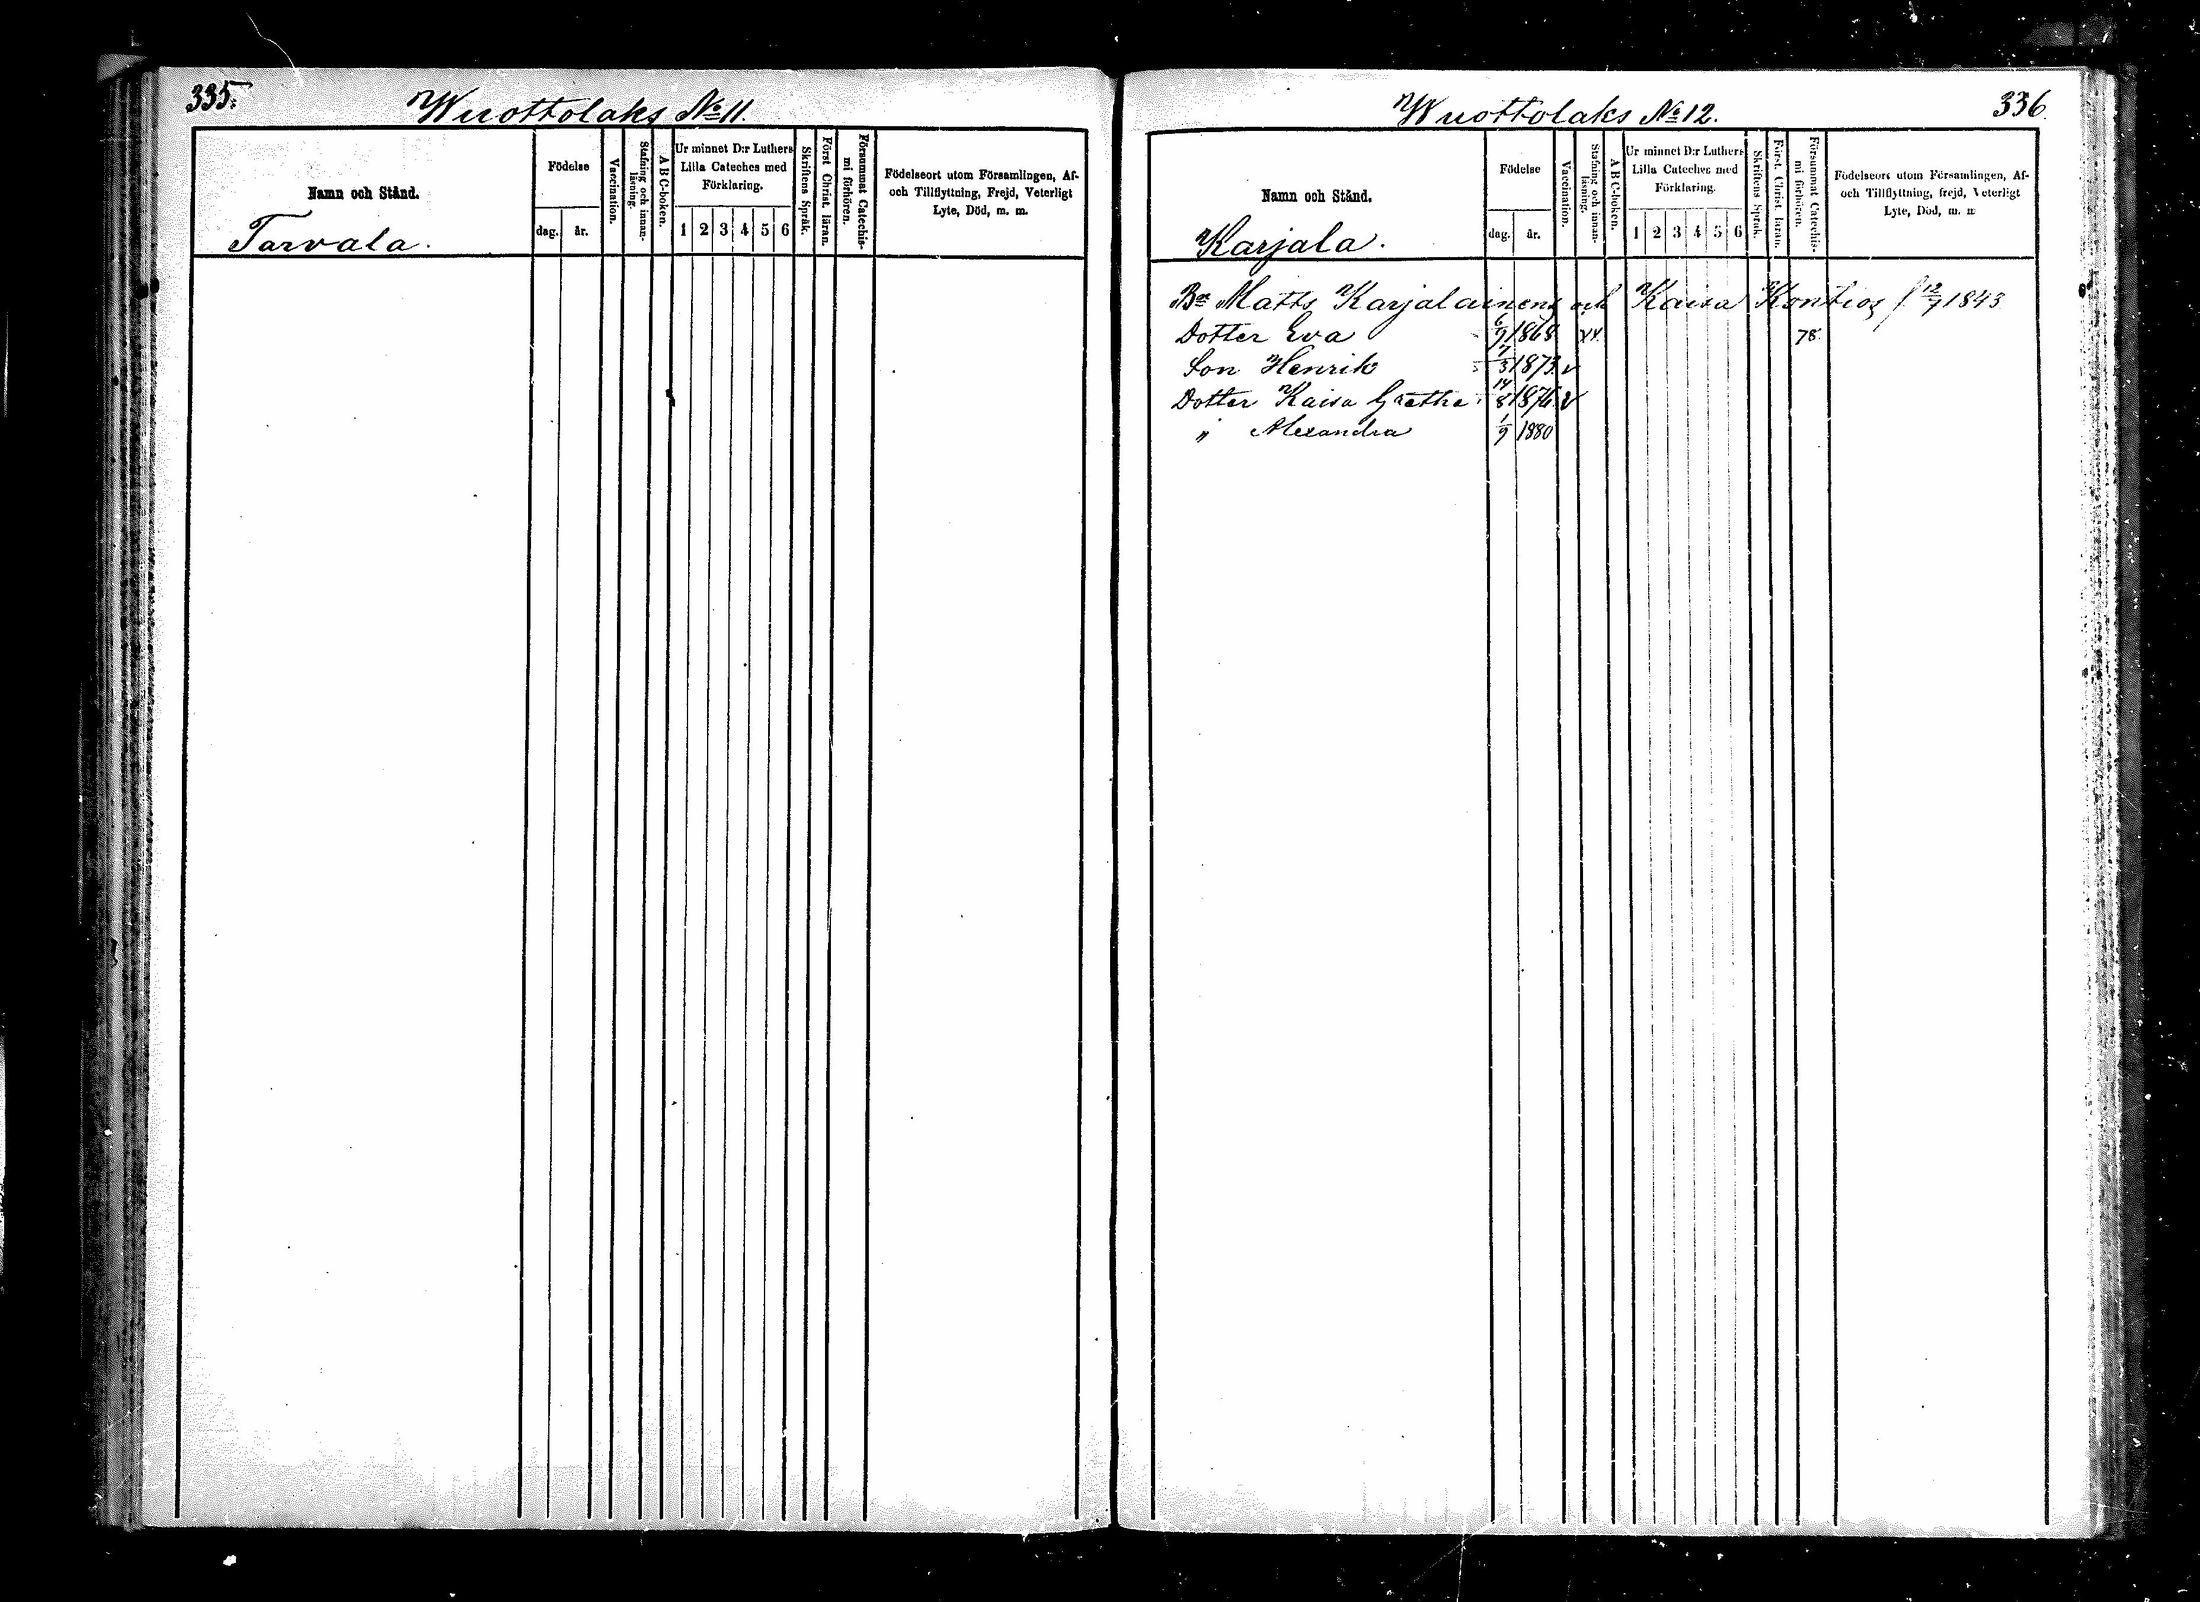 335.
Wuottolaks No 11.
Namn och Stånd.
Tarvala.
Födelse
dag.
år.
Vaccination.
Stafning och innan-
läsning.
A B C-boken.
Ur minnet D:r Luthers
Lilla Cateches med
Förklaring.
1 2 3 4 5 6
Skriftens Språk.
Först. Christ. läran.
Försummat Catechis-
mi förhören.
Födelseort utom Församlingen, Af-
och Tillflyttning, Frejd, Veterligt
Lyte, Död, m. m.
Wuottolaks No 12.
336.
Namn och Stånd.
Karjala.
Födelse
dag.
år.
Vaccination.
Stafning och innan-
läsning.
A B C-boken.
Ur minnet D:r Luthers
Lilla Cateches med
Förklaring.
1 2 3 4 5 6
Skriftens Språk.
Först. Christ. läran.
Försummat Catechis-
mi förhören.
Födelseort utom Församlingen, Af-
och Tillflyttning, frejd, Veterligt
Lyte, Död, m. m
Bn Matts Karjalainens och Kaisa Kontios f 12/7 1843
Dotter Eva 6/9 1868 xx. 78.
Son Henrik 7/3 1873 v
Dotter Kaisa Grethe 14/8 1876 v
" Alexandra 1/9 1880